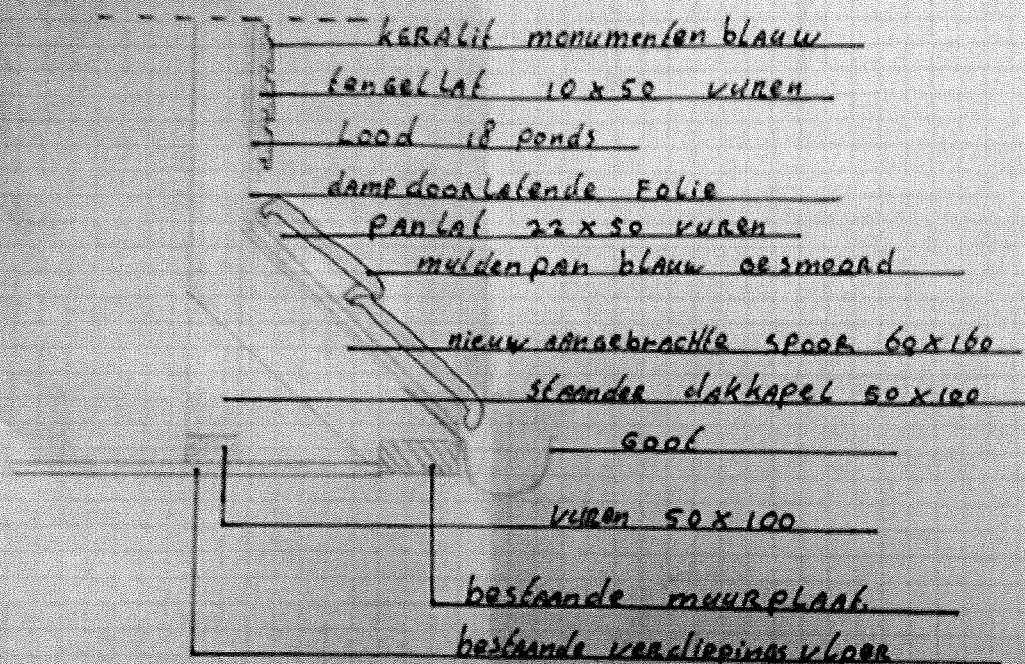 KERALit monumenten blauw
tengellat 10 x 50 vuren
Lood 18 ponds
dampdoorlatende Folie
panlat 22 x 50 vuren
muldenpan blauw gesmoord
nieuw aangebrachte spoor 60 x 160
staander dakkapel 50 x 100
goot
vuren 50 x 100
bestaande muurplaat
bestaande verdiepings vloer